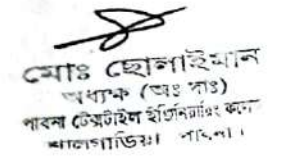 মোঃ ছোলাইমান
অধ্যক্ষ (অঃ দাঃ)
পাবনা টেক্সটাইল ইঞ্জিনিয়ারিং কলেজ
শালগাড়িয়া পাবনা।